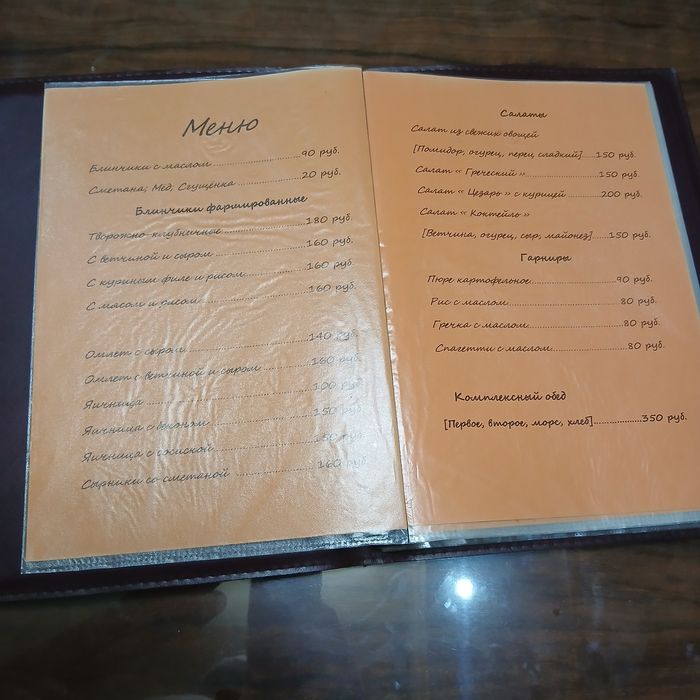 Меню
Блинчики с маслом.....................90 руб.
Сметана; Мёд; Сгущёнка................20 руб.
Блинчики фаршированные
Творожно-клубничные.....................180 руб.
С ветчиной и сыром......................160 руб.
С куриным филе и рисом...............160 руб.
С мясом и рисом...........................160 руб.
Омлет с сыром..............................140 руб.
Омлет с ветчиной и сыром............160 руб.
Яичница.........................................100 руб.
Яичница с беконом........................150 руб.
Яичница с сосиской.......................150 руб.
Сырники со сметаной ....................160 руб.
Салаты
Салат из свежих овощей
[Помидор, огурец, перец сладкий].....150 руб.
Салат « Греческий »......................150 руб.
Салат « Цезарь » с курицей ..........200 руб.
Салат « Коктейль »
[Ветчина, огурец, сыр, майонез]......150 руб.
Гарниры
Пюре картофельное......................90 руб.
Рис с маслом.............................80 руб.
Гречка с маслом.........................80 руб.
Спагетти с маслом......................80 руб.
Комплексный обед
[Первое, второе, морс, хлеб]..................350 руб.